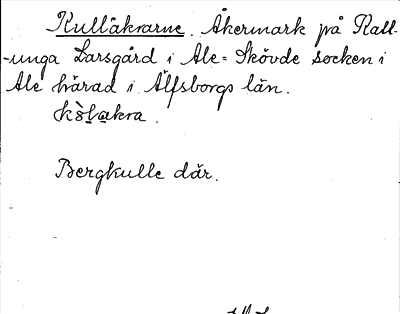 Kullåkrarne. Åkermark på Kall-
-unga Larsgård i Ale-Skövde socken i
Ale härad i Älfsborgs län.

Bergkulle där.